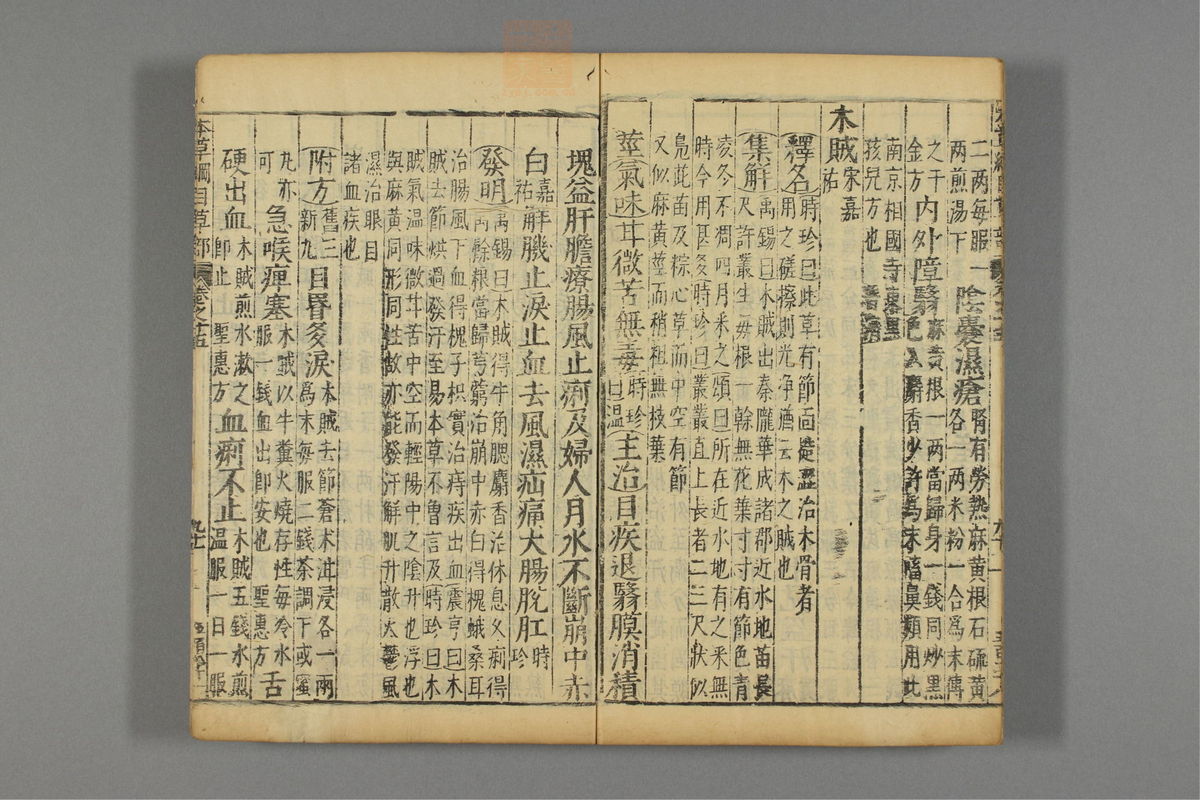 二兩每服一陰囊濕瘡腎有勞熱麻黃根石硫黃
兩煎湯下各一兩米粉一合爲末傅
之千內外障翳麻黃根一兩當歸身一錢同炒黑
金方色入麝香少許爲末㗜鼻頻用此
南京相國寺東黑
孩兒方也
木賊宋嘉祐
釋名時珍曰此草有節面糙澀治木骨者
用之磋擦則光淨猶云木之賊也
集解禹錫曰木賊出秦隴華成諸郡近水地苗長
尺許叢生每根一榦無花葉寸寸有節色青
凌冬不凋四月采之頌曰所在近水地有之采無
時今用甚多時珍曰叢叢直上長者二三尺狀似
鳧茈苗及粽心草而中空有節
又似麻黃莖而稍粗無枝葉
莖氣味甘微苦無毒時珍曰溫主治目疾退翳膜消積
塊益肝膽療腸風止痢及婦人月水不斷崩中赤
白嘉祐解肌止淚止血去風濕疝痛大腸脫肛時珍
發明禹錫曰木賊得牛角䚡麝香治休息久痢得
禹餘粮當歸芎藭治崩中赤白得槐蛾桑耳
治腸風下血得槐子枳實治痔疾出血震亨曰木
賊去節烘過發汗至易本草不曾言及時珍曰木
賊氣溫味微甘苦中空而輕陽中之陰升也浮也
與麻黃同形同性故亦能發汗解肌升散火鬱風
濕治眼目
諸血疾也
附方舊三新九目昏多淚木賊去節蒼术泔浸各一兩
爲末每服二錢茶調下或蜜
丸亦可急喉痺塞木賊以牛糞火燒存性每冷水
服一錢血出卽安也聖惠方舌
硬出血木賊煎水漱之卽止聖惠方血痢不止木賊五錢水煎
溫服一日一服
本草綱目草部
卷之十五
九十一